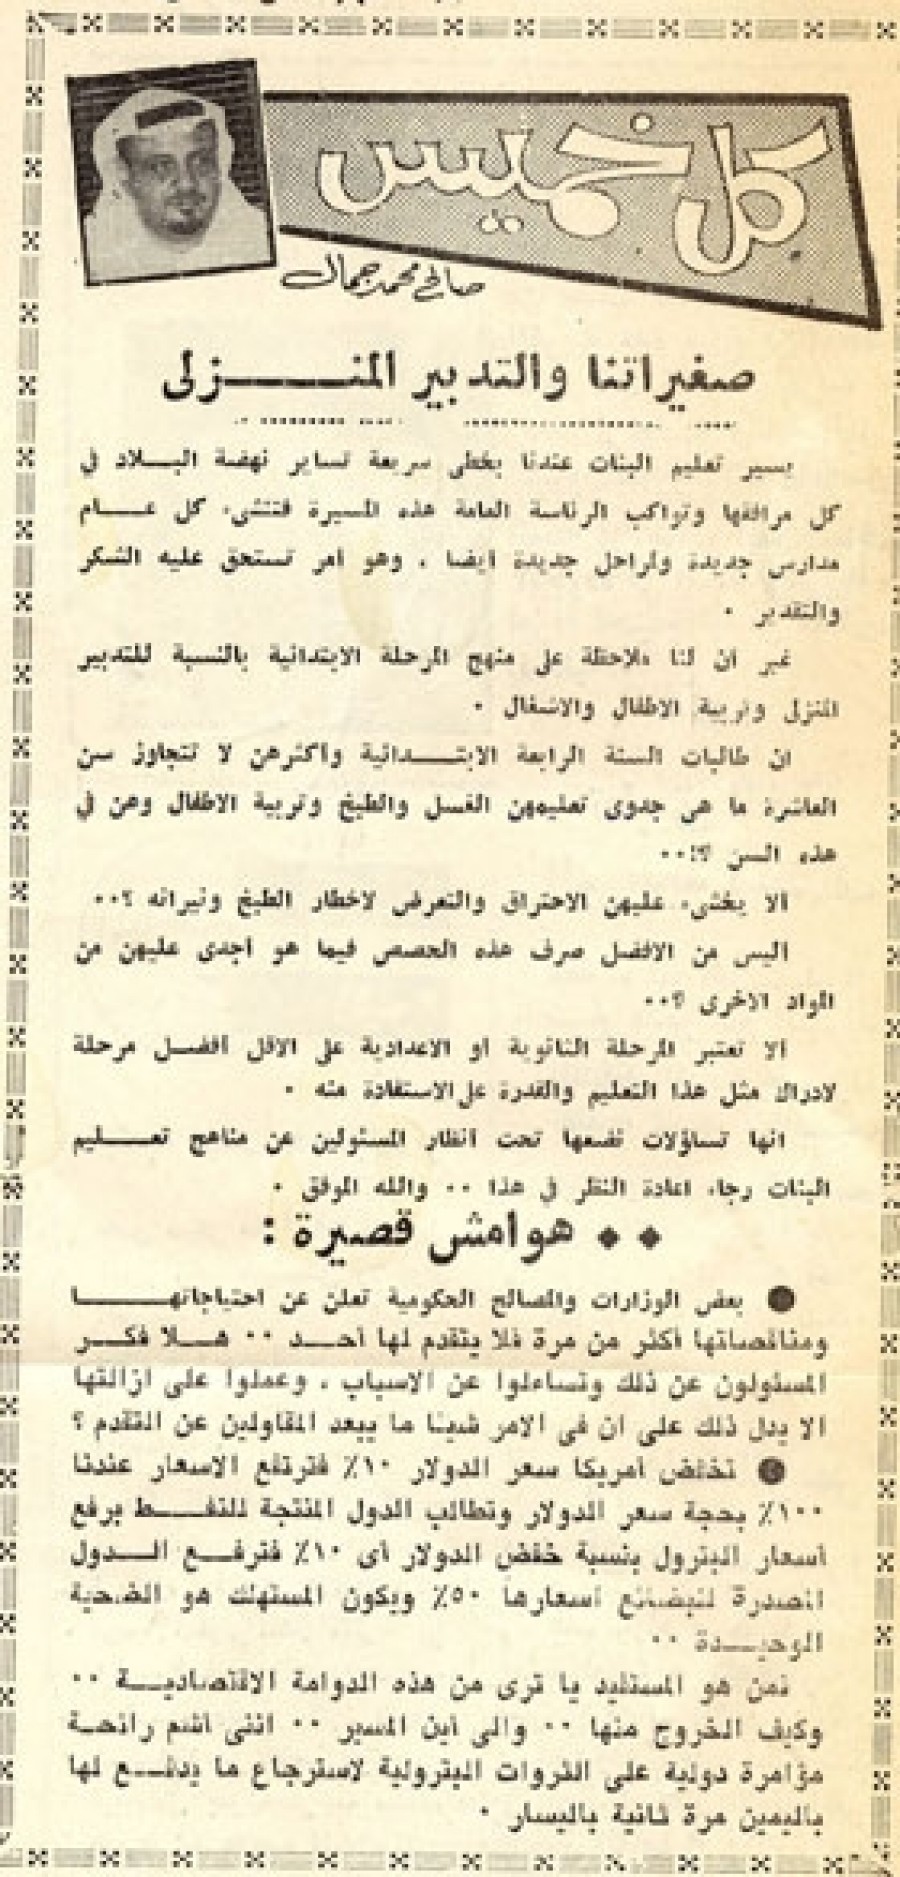 كل خميس
صالح محمد جمال
صغيراتنا والتدبير المنزلى
يسير تعليم البنات عندنا بخطى سريعة تساير نهضة البلاد في
كل مرافقها وتواكب الرئاسة العامة هذه المسيرة فتنشىء كل عام
مدارس جديدة ولمراحل جديدة أيضا ، وهو أمر تستحق عليه الشكر
والتقدير .
غير أن لنا ملاحظة على منهج المرحلة الابتدائية بالنسبة للتدبير
المنزلي وتربية الاطفال والاشغال .
ان طالبات السنة الرابعة الابتدائية وأكثرهن لا تتجاوز سن
العاشرة ما هى جدوى تعليمهن الغسل والطبخ وتربية الاطفال وهن في
هذه السن ؟!..
ألا يخشىء عليهن الاحتراق والتعرض لاخطار الطبخ ونيرانه ؟..
أليس من الافضل صرف هذه الحصص فيما هو أجدى عليهن من
المواد الاخرى ؟..
ألا تعتبر المرحلة الثانوية أو الاعدادية على الاقل أفضل مرحلة
لادراك مثل هذا التعليم والقدرة على الاستفادة منه .
انها تساؤلات نضعها تحت أنظار المسئولين عن مناهج تعليم
البنات رجاء اعادة النظر في هذا .. والله الموفق .
** هوامش قصيرة :
● بعض الوزارات والمصالح الحكومية تعلن عن احتياجاتها
ومناقصاتها أكثر من مرة فلا يتقدم لها أحد .. هلا فكر
المسئولون عن ذلك وتساءلوا عن الاسباب ، وعملوا على ازالتها
ألا يدل ذلك على ان فى الامر شيئا ما يبعد المقاولين عن التقدم ؟
● تخفض أمريكا سعر الدولار ١٠٪ فترتفع الاسعار عندنا
١٠٠٪ بحجة سعر الدولار وتطالب الدول المنتجة للنفط برفع
أسعار البترول بنسبة خفض الدولار أى ١٠٪ فترفع الدول
المصدرة للبضائع أسعارها ٥٠٪ ويكون المستهلك هو الضحية
الوحيدة ..
فمن هو المستفيد يا ترى من هذه الدوامة الاقتصادية ..
وكيف الخروج منها .. والى أين المسير .. اننى أشم رائحة
مؤامرة دولية على الثروات البترولية لاسترجاع ما يدفع لها
باليمين مرة ثانية باليسار .